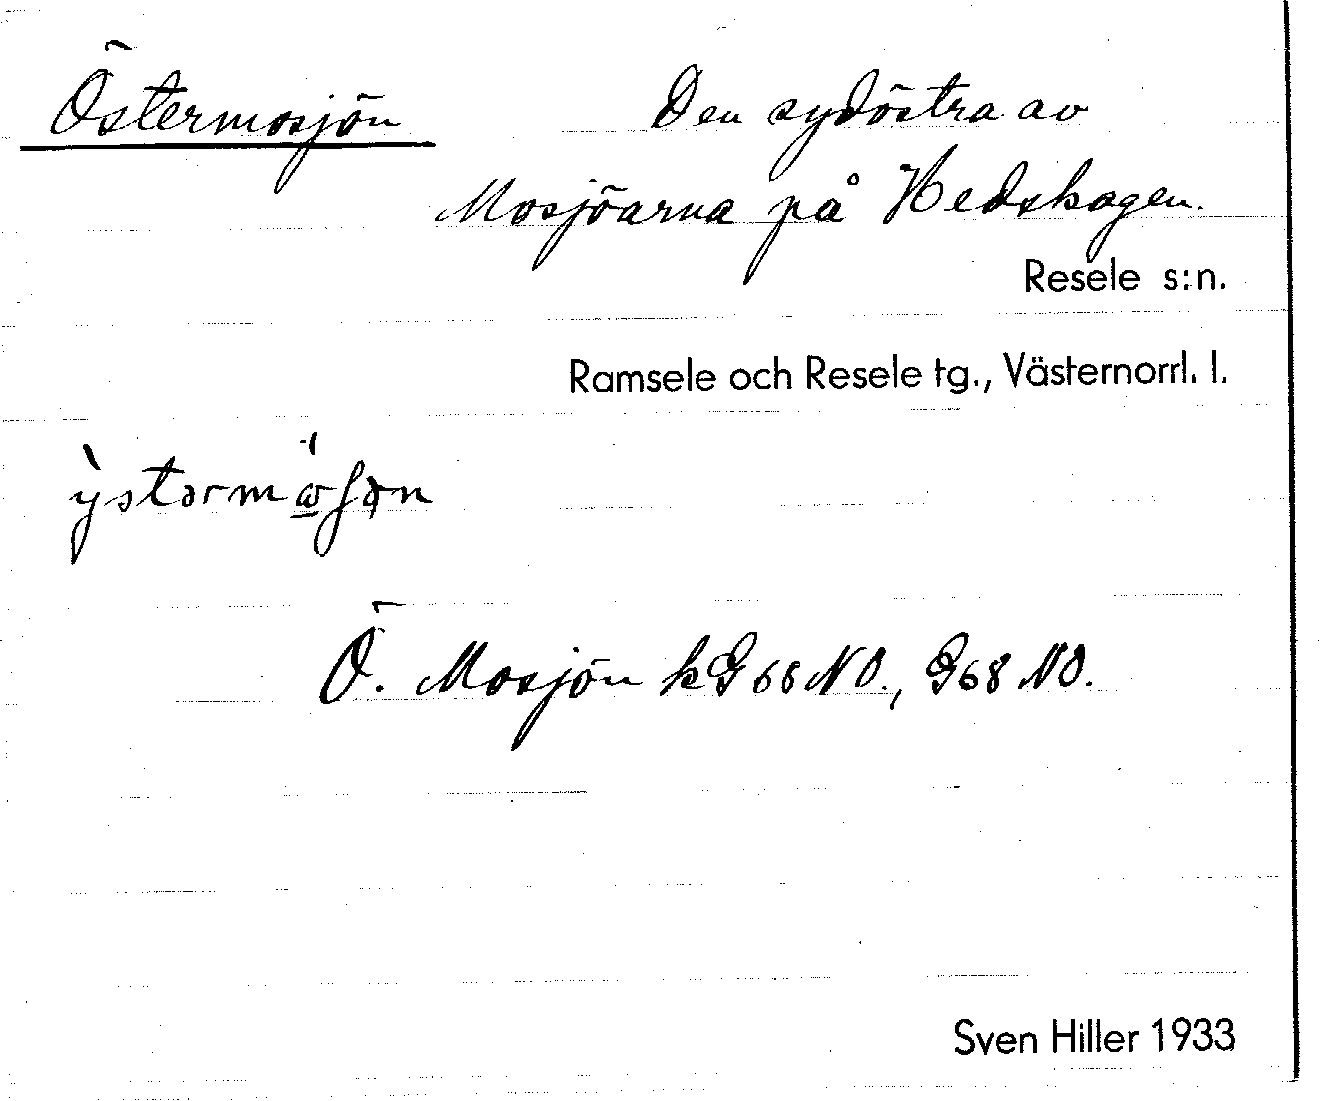 Östermosjön Den sydöstra av
Mosjöarna på Hedskogen.
Resele s:n.
Ramsele och Resele tg., Västernorrl. l.
Ö. Mosjön kG 68 NO., G68 NO.
Sven Hiller 1933